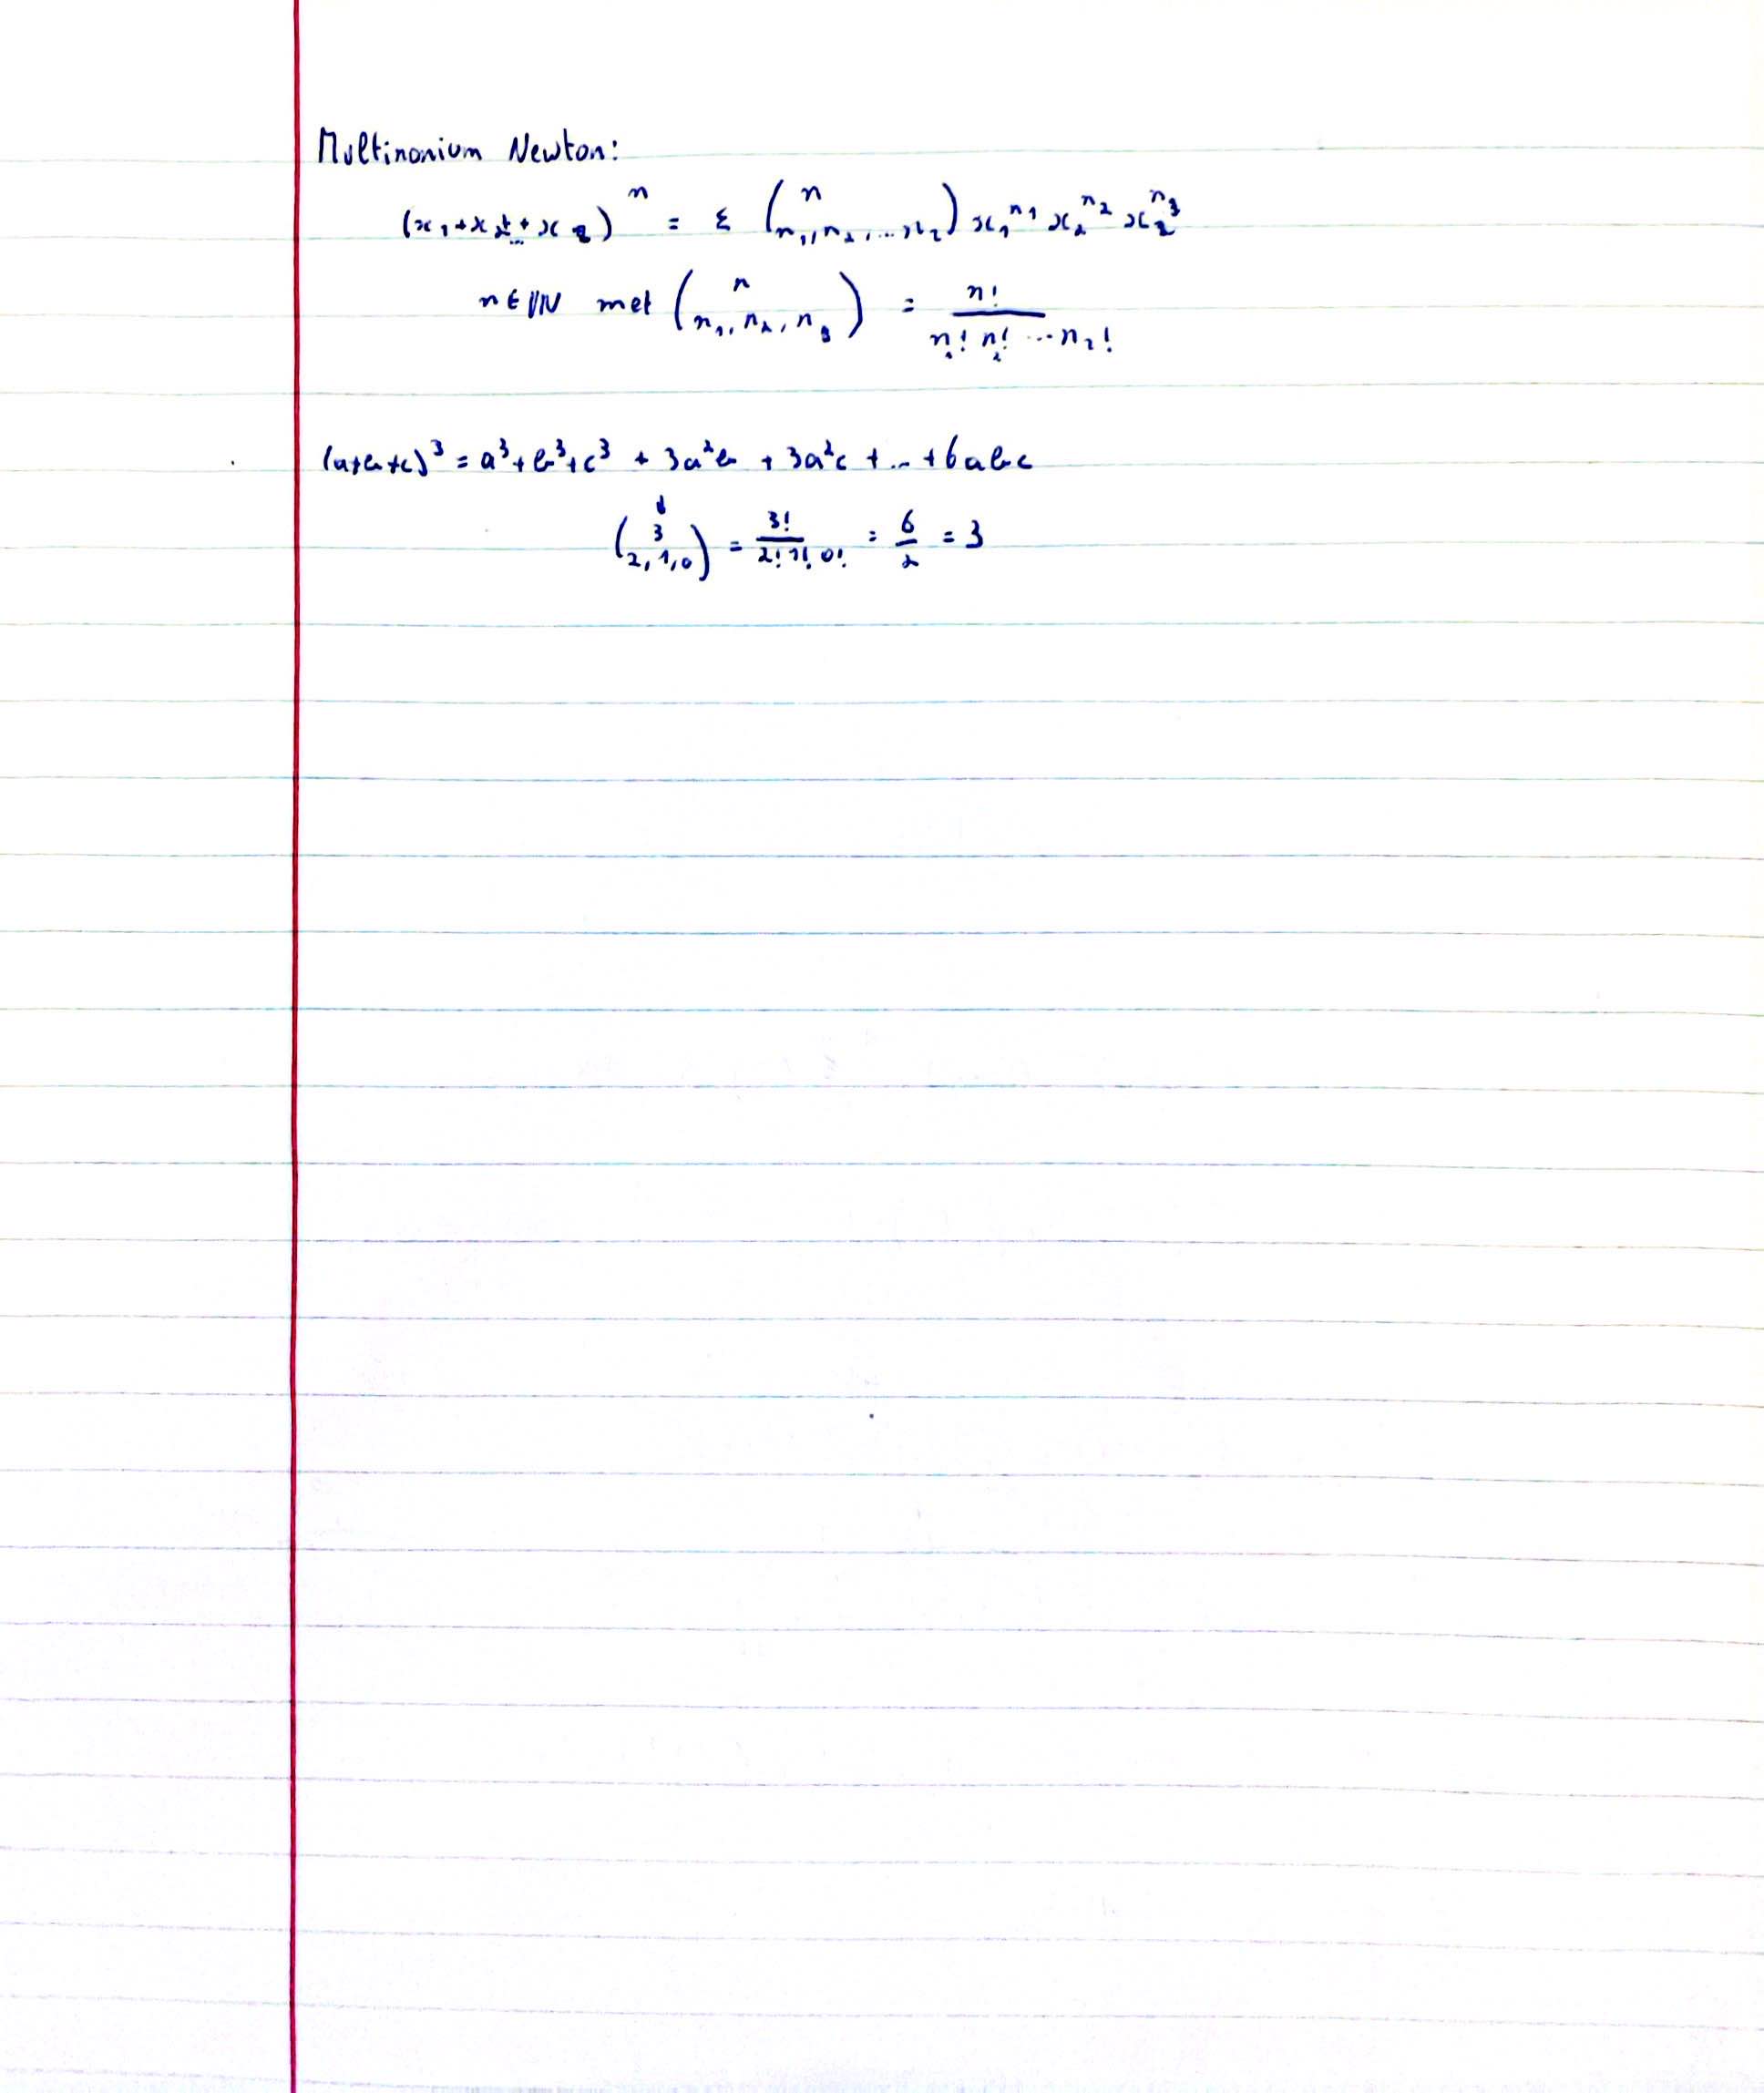 Multinomium Newton:
(x₁+x₂+...+x₂)ⁿ = Σ (n / n₁, n₂, ... n₂) x₁^n₁ x₂^n₂ x₂^n₃
n ∈ ℕ met (n / n₁, n₂, n₃) = n! / (n₁! n₂! ... n₂!)
(a+b+c)³ = a³+b³+c³ + 3a²b + 3a²c + ... + 6abc
↓
(3 / 2,1,0) = 3! / (2! 1! 0!) = 6/2 = 3